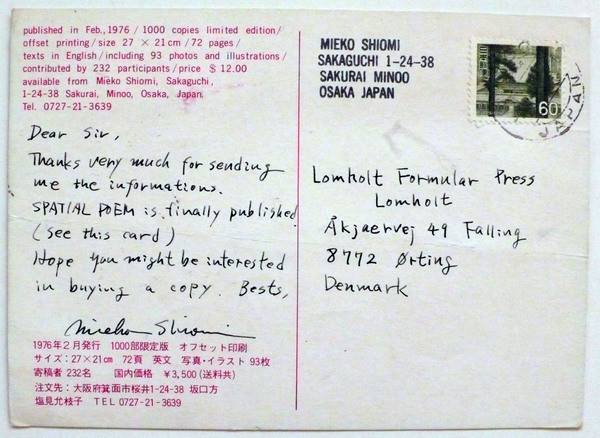 published in Feb., 1976 / 1000 copies limited edition/
offset printing/size 27 × 21cm/72 pages/
texts in English/including 93 photos and illustrations/
contributed by 232 participants/price $ 12.00
available from Mieko Shiomi, Sakaguchi,
1-24-38 Sakurai, Minoo, Osaka, Japan.
Tel. 0727-21-3639
Dear Sir,
Thanks very much for sending
me the informations.
SPATIAL POEM is finally published
(see this card)
Hope you might be interested
in buying a copy. Bests,
Mieko Shiomi
1976年2月発行 1000部限定版 オフセット印刷
サイズ：27×21cm 72頁 英文 写真・イラスト 93枚
寄稿者 232名 国内価格 ¥3,500(送料共)
注文先：大阪府箕面市桜井1-24-38 坂口方
塩見允枝子 TEL 0727-21-3639
MIEKO SHIOMI
SAKAGUCHI 1-24-38
SAKURAI MINOO
OSAKA JAPAN
日本郵便
60
JAPAN
Lomholt Formular Press
Lomholt
Åkjaervej 49 Falling
8772 Ørting
Denmark